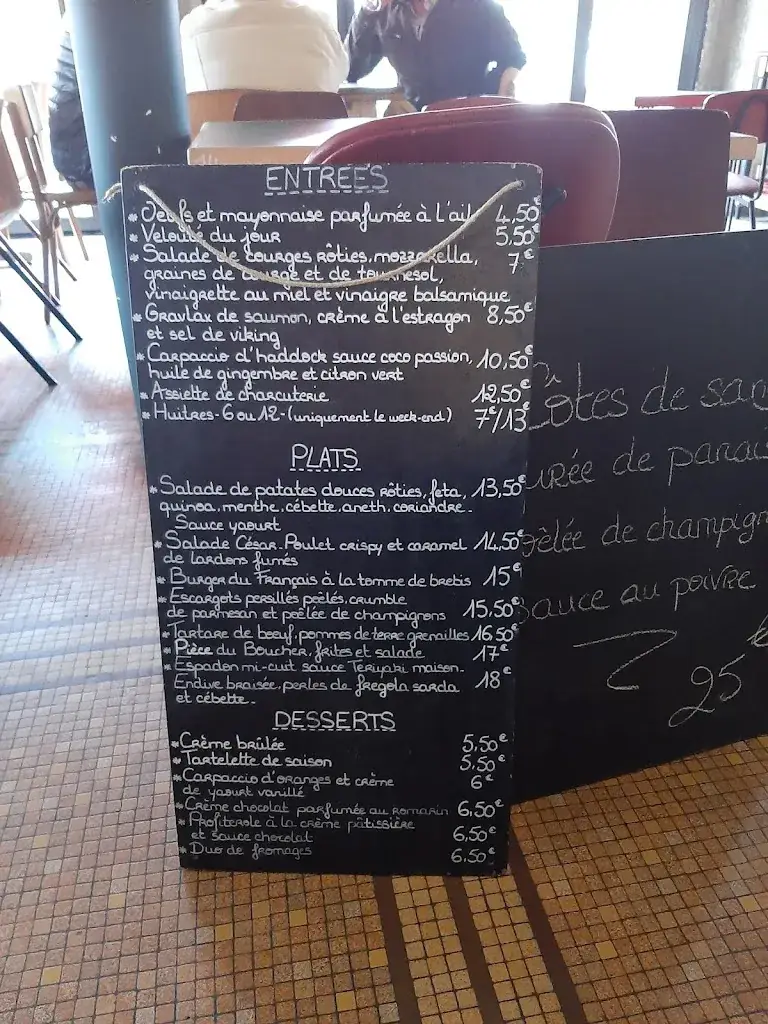 ENTREES
* Oeufs et mayonnaise parfumée à l'ail 4,50€
* Velouté du jour 5.50€
* Salade de courges rôties, mozzarella, 7€
graines de courge et de tournesol,
vinaigrette au miel et vinaigre balsamique
* Gravlax de saumon, crème à l'estragon 8,50€
et sel de viking
* Carpaccio d'haddock sauce coco passion, 10,50€
huile de gingembre et citron vert
* Assiette de charcuterie 12,50€
* Huîtres - 6 ou 12 - (uniquement le week-end) 7€/13€
PLATS
* Salade de patates douces rôties, feta, 13,50€
quinoa, menthe, cébette, aneth, coriandre.
Sauce yaourt
* Salade César. Poulet crispy et caramel 14,50€
de lardons fumés
* Burger du Français à la tomme de brebis 15€
* Escargots persillés poêlés, crumble
de parmesan et poêlée de champignons 15,50€
* Tartare de boeuf, pommes de terre grenailles 16.50€
* Pièce du Boucher, frites et salade 17€
* Espadon mi-cuit sauce Teriyaki maison.
Endive braisée, perles de fregola sarda 18€
et cébette.
DESSERTS
* Crème brûlée 5,50€
* Tartelette de saison 5,50€
* Carpaccio d'oranges et crème 6€
de yaourt vanillé
* Crème chocolat parfumée au romarin 6,50€
* Profiterole à la crème pâtissière
et sauce chocolat 6,50€
* Duo de fromages 6.50€
Côtes de
de
de
Sauce au poivre
25 €